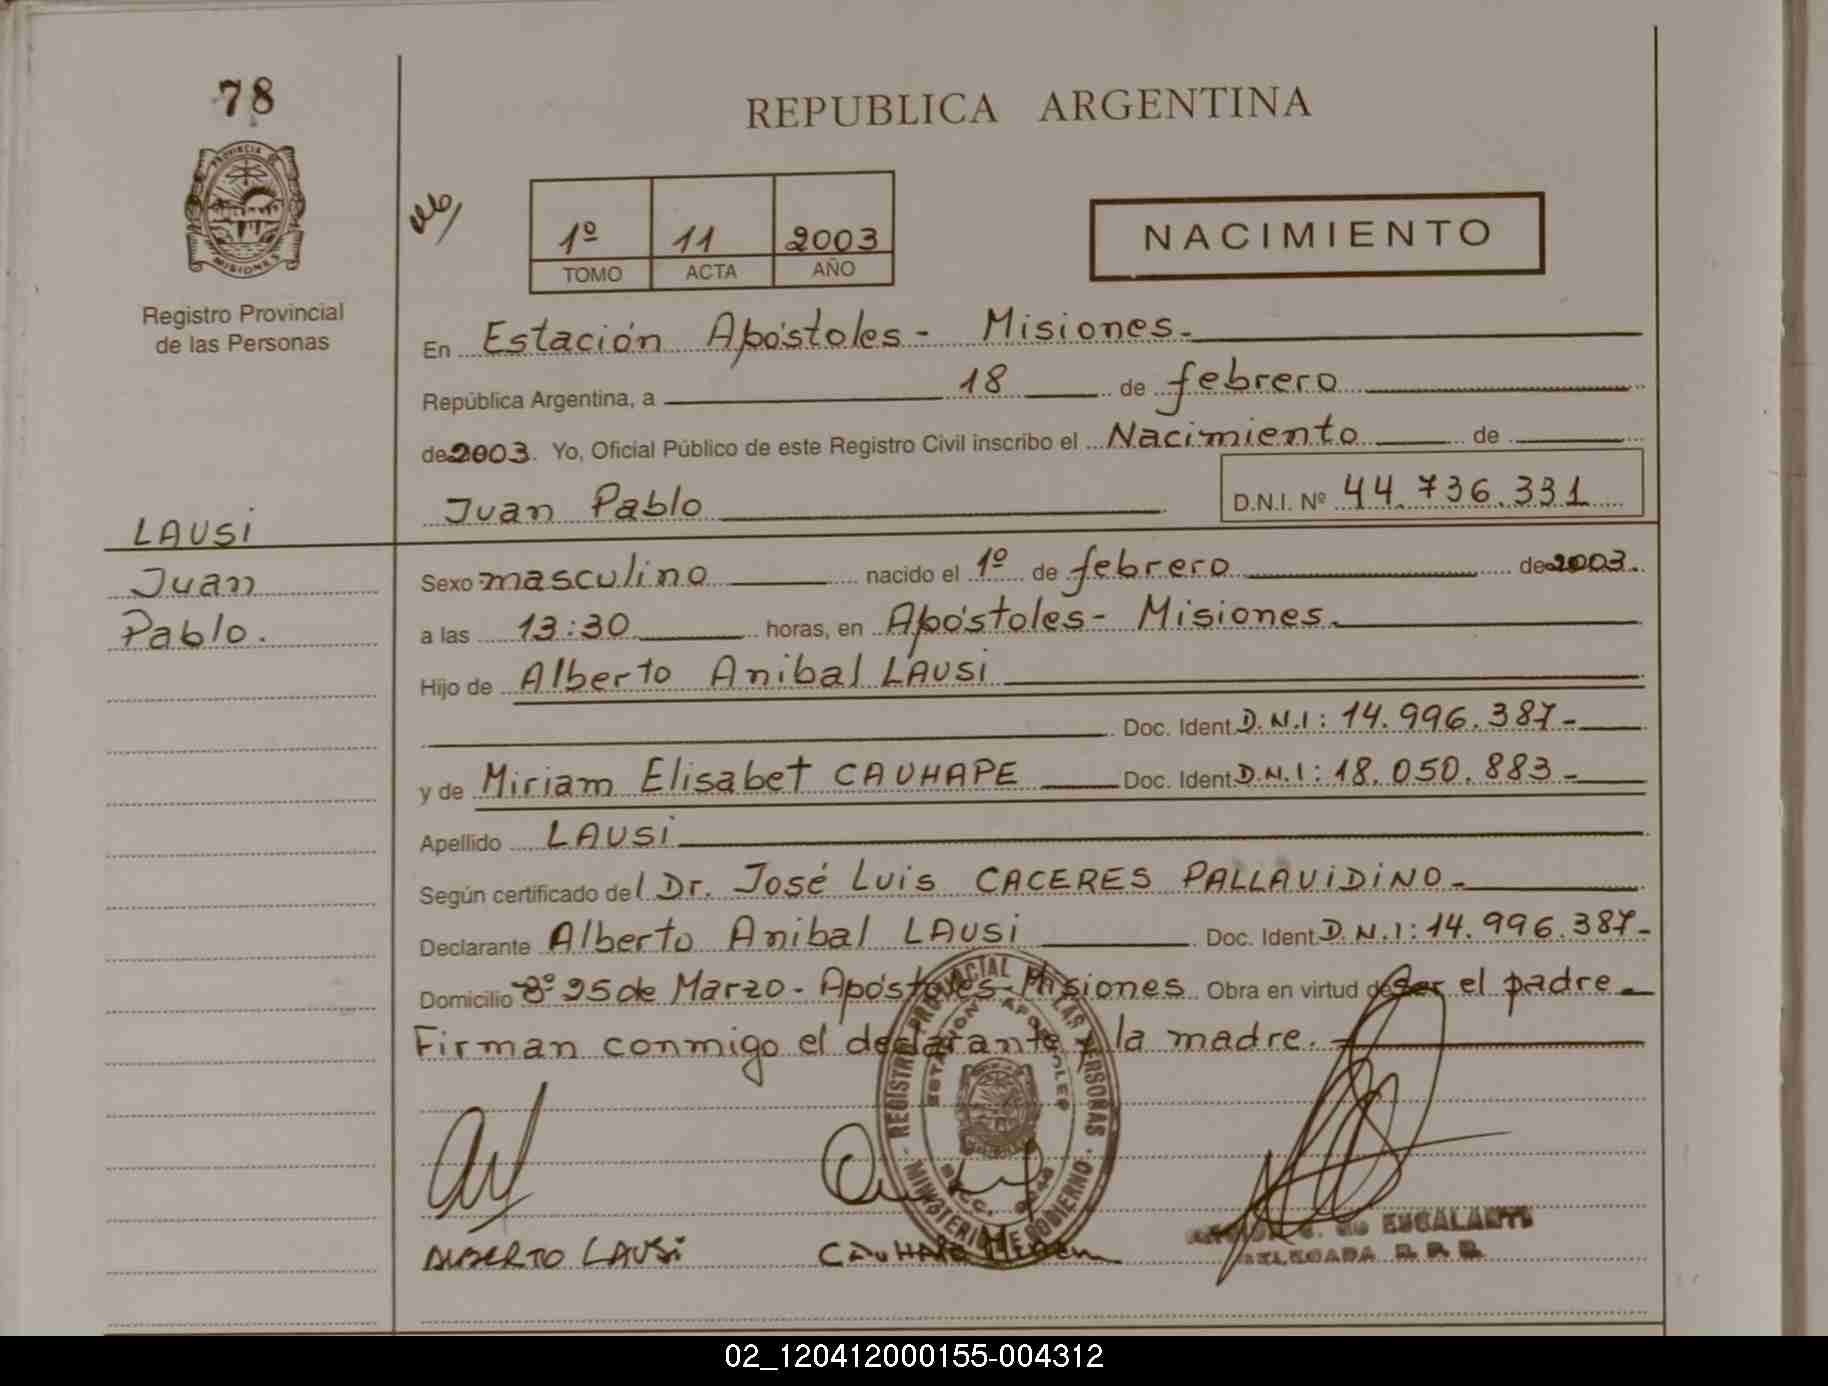 78
REPUBLICA ARGENTINA
PROVINCIA DE
MISIONES
1º 11 2003
TOMO ACTA AÑO
NACIMIENTO
Registro Provincial
de las Personas
En Estación Apóstoles - Misiones.
República Argentina, a 18 de febrero
de 2003. Yo, Oficial Público de este Registro Civil inscribo el Nacimiento de
Juan Pablo D.N.I. Nº 44.736.331
LAUSi
Juan
Pablo.
Sexo masculino nacido el 1º de febrero de 2003.
a las 13:30 horas, en Apóstoles - Misiones.
Hijo de Alberto Anibal LAUSi
Doc. Ident. D.N.I: 14.996.387-
y de Miriam Elisabet CAUHAPE Doc. Ident. D.N.I: 18.050.883-
Apellido LAUSi
Según certificado del Dr. José Luis CACERES PALLAViDiNO-
Declarante Alberto Anibal LAUSi Doc. Ident. D.N.I: 14.996.387-
Domicilio Bº 25 de Marzo - Apóstoles - Misiones Obra en virtud de ser el padre
Firman conmigo el declarante y la madre.
REGISTRO PROVINCIAL DE LAS PERSONAS
ESTACION APOSTOLES
MINISTERIO DE GOBIERNO
ALBERTO LAUSi CAUHAPE Miriam
DE ESCALANTE
DELEGADA R. P. P.
02_120412000155-004312